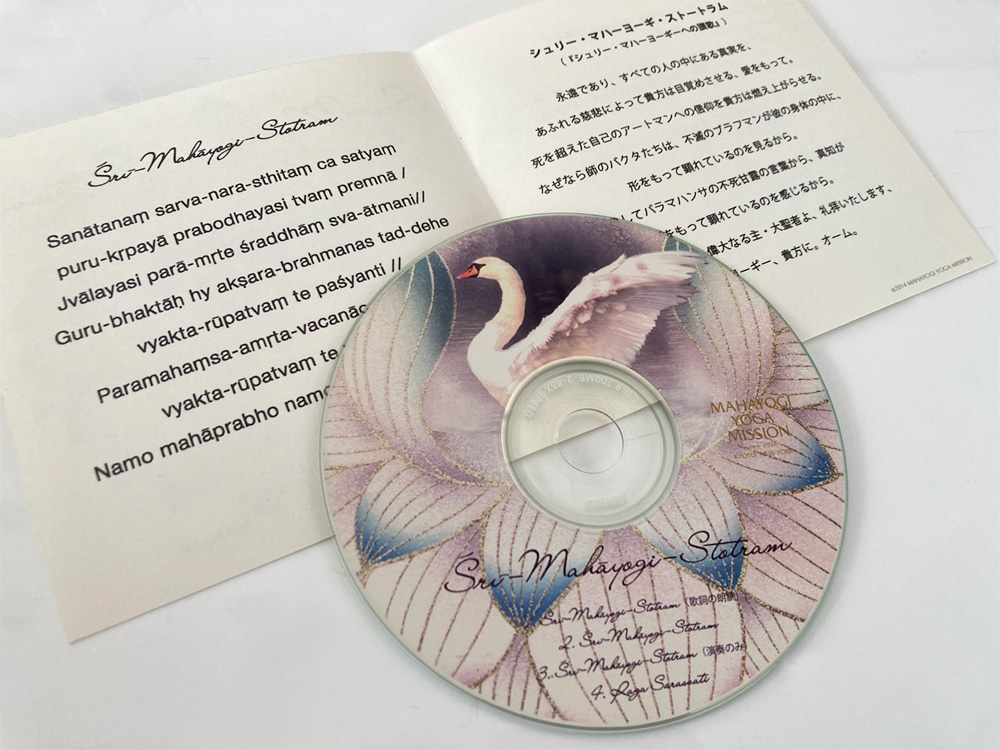 Śrī-Mahāyogi-Stotram
Sanātanaṃ sarva-nara-sthitaṃ ca satyaṃ
puru-kṛpayā prabodhayasi tvaṃ premnā /
Jvālayasi parā-mṛte śraddhāṃ sva-ātmani//
Guru-bhaktāḥ hy akṣara-brahmanas tad-dehe
vyakta-rūpatvaṃ te paśyanti //
Paramahaṃsa-amṛta-vacanāc
vyakta-rūpatvaṃ te
Namo mahāprabho namo
シュリー・マハーヨーギ・ストートラム
（『シュリー・マハーヨーギーへの讃歌』）
永遠であり、すべての人の中にある真実を、
あふれる慈悲によって貴方は目覚めさせる、愛をもって。
死を超えた自己のアートマンへの信仰を貴方は燃え上がらせる。
なぜなら師のバクタたちは、不滅のブラフマンが彼の身体の中に、
形をもって顕れているのを見るから。
してパラマハンサの不死甘露の言葉から、真知が
をもって顕れているのを感じるから。
偉大なる主・大聖者よ、礼拝いたします、
ーギー、貴方に。オーム。
©2014 MAHAYOGI YOGA MISSION
MAHAYOGI
YOGA
MISSION
since 1976
KYOTO NEW YORK
Śrī-Mahāyogi-Stotram
Śrī-Mahāyogi-Stotram（歌詞の朗読）
2. Śrī-Mahāyogi-Stotram
3. Śrī-Mahāyogi-Stotram（演奏のみ）
4. Raga Sarasvati